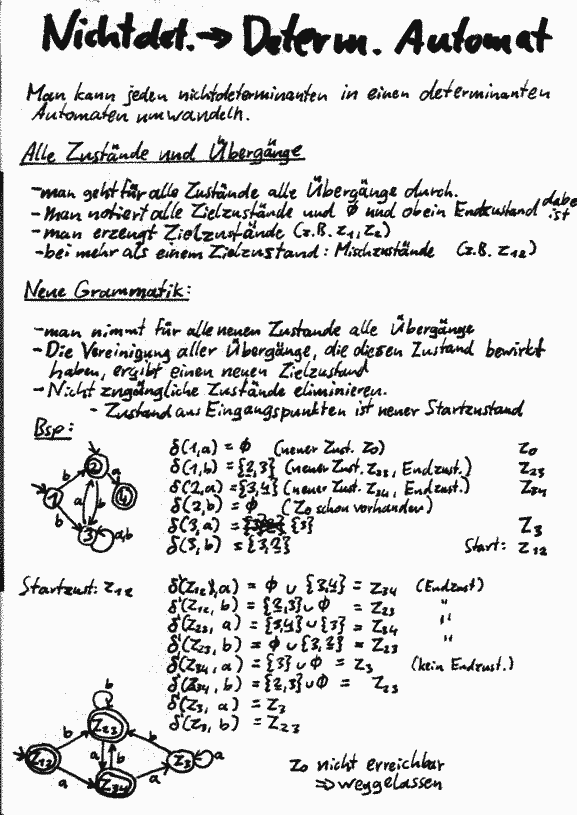 Nichtdet. → Determ. Automat
Man kann jeden nichtdeterminanten in einen determinanten
Automaten umwandeln.
Alle Zustände und Übergänge
- man geht für alle Zustände alle Übergänge durch.
- Man notiert alle Zielzustände und ϕ und ob ein Endzustand dabei ist
- man erzeugt Zielzustände (z.B. z1, z2)
- bei mehr als einem Zielzustand: Mischzustände (z.B. z12)
Neue Grammatik:
- man nimmt für alle neuen Zustande alle Übergänge
- Die Vereinigung aller Übergänge, die diesen Zustand bewirkt
haben, ergibt einen neuen Zielzustand
- Nicht zugängliche Zustände eliminieren.
- Zustand aus Eingangspunkten ist neuer Startzustand
Bsp:
1 2 3 4 b a a b b a,b
δ(1,a) = ϕ (neuer Zust. z0) z0
δ(1,b) = {2,3} (neuer Zust. z23, Endzust.) z23
δ(2,a) = {3,4} (neuer Zust. z34, Endzust.) z34
δ(2,b) = ϕ (z0 schon vorhanden)
δ(3,a) = {3} z3
δ(3,b) = {3,2} Start: z12
Startzust: z12 δ'(z12,a) = ϕ ∪ {3,4} = z34 (Endzust)
δ'(z12, b) = {2,3} ∪ ϕ = z23 "
δ'(z23, a) = {3,4} ∪ {3} = z34 "
δ'(z23, b) = ϕ ∪ {3,2} = z23 "
δ'(z34, a) = {3} ∪ ϕ = z3 (kein Endzust.)
δ'(z34, b) = {2,3} ∪ ϕ = z23
δ'(z3, a) = z3
δ'(z3, b) = z23
b
z23
b b
z12 a b z3 a
a a
z34
z0 nicht erreichbar
⇒ weggelassen